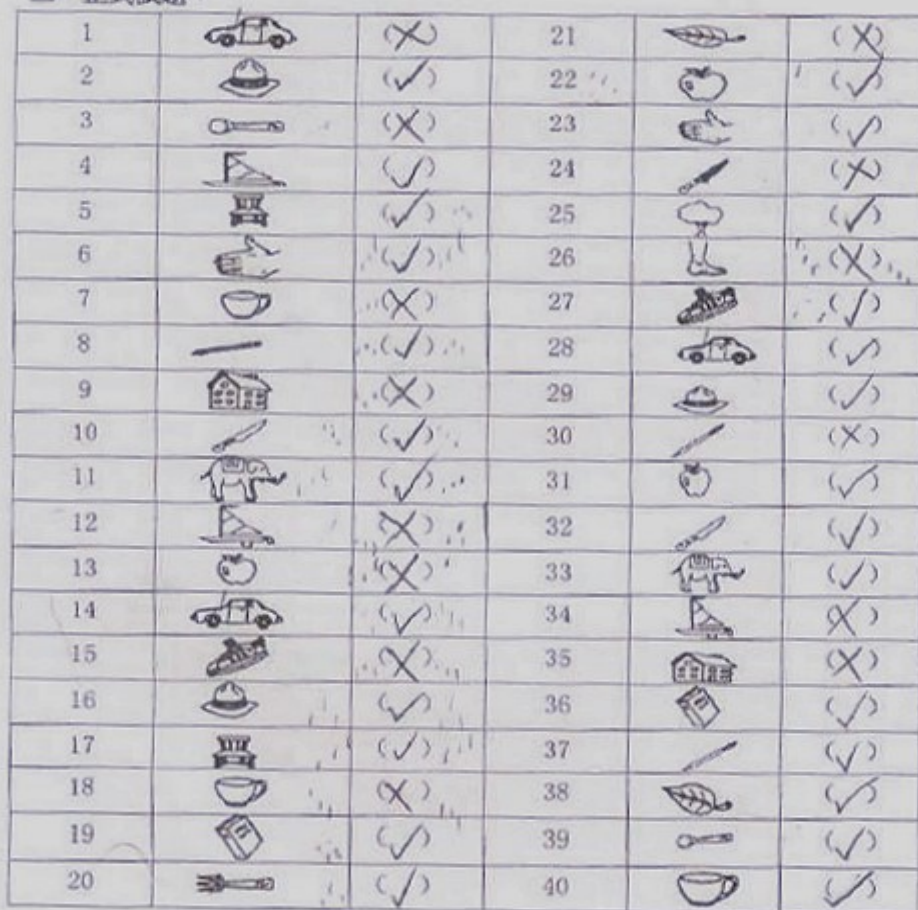 1 (✗) 21 (✗)
2 (✓) 22 (✓)
3 (✗) 23 (✓)
4 (✓) 24 (✗)
5 (✓) 25 (✓)
6 (✓) 26 (✗)
7 (✗) 27 (✓)
8 (✓) 28 (✓)
9 (✗) 29 (✓)
10 (✓) 30 (✗)
11 (✓) 31 (✓)
12 (✗) 32 (✓)
13 (✗) 33 (✓)
14 (✓) 34 (✗)
15 (✗) 35 (✗)
16 (✓) 36 (✓)
17 (✓) 37 (✓)
18 (✗) 38 (✓)
19 (✓) 39 (✓)
20 (✓) 40 (✓)